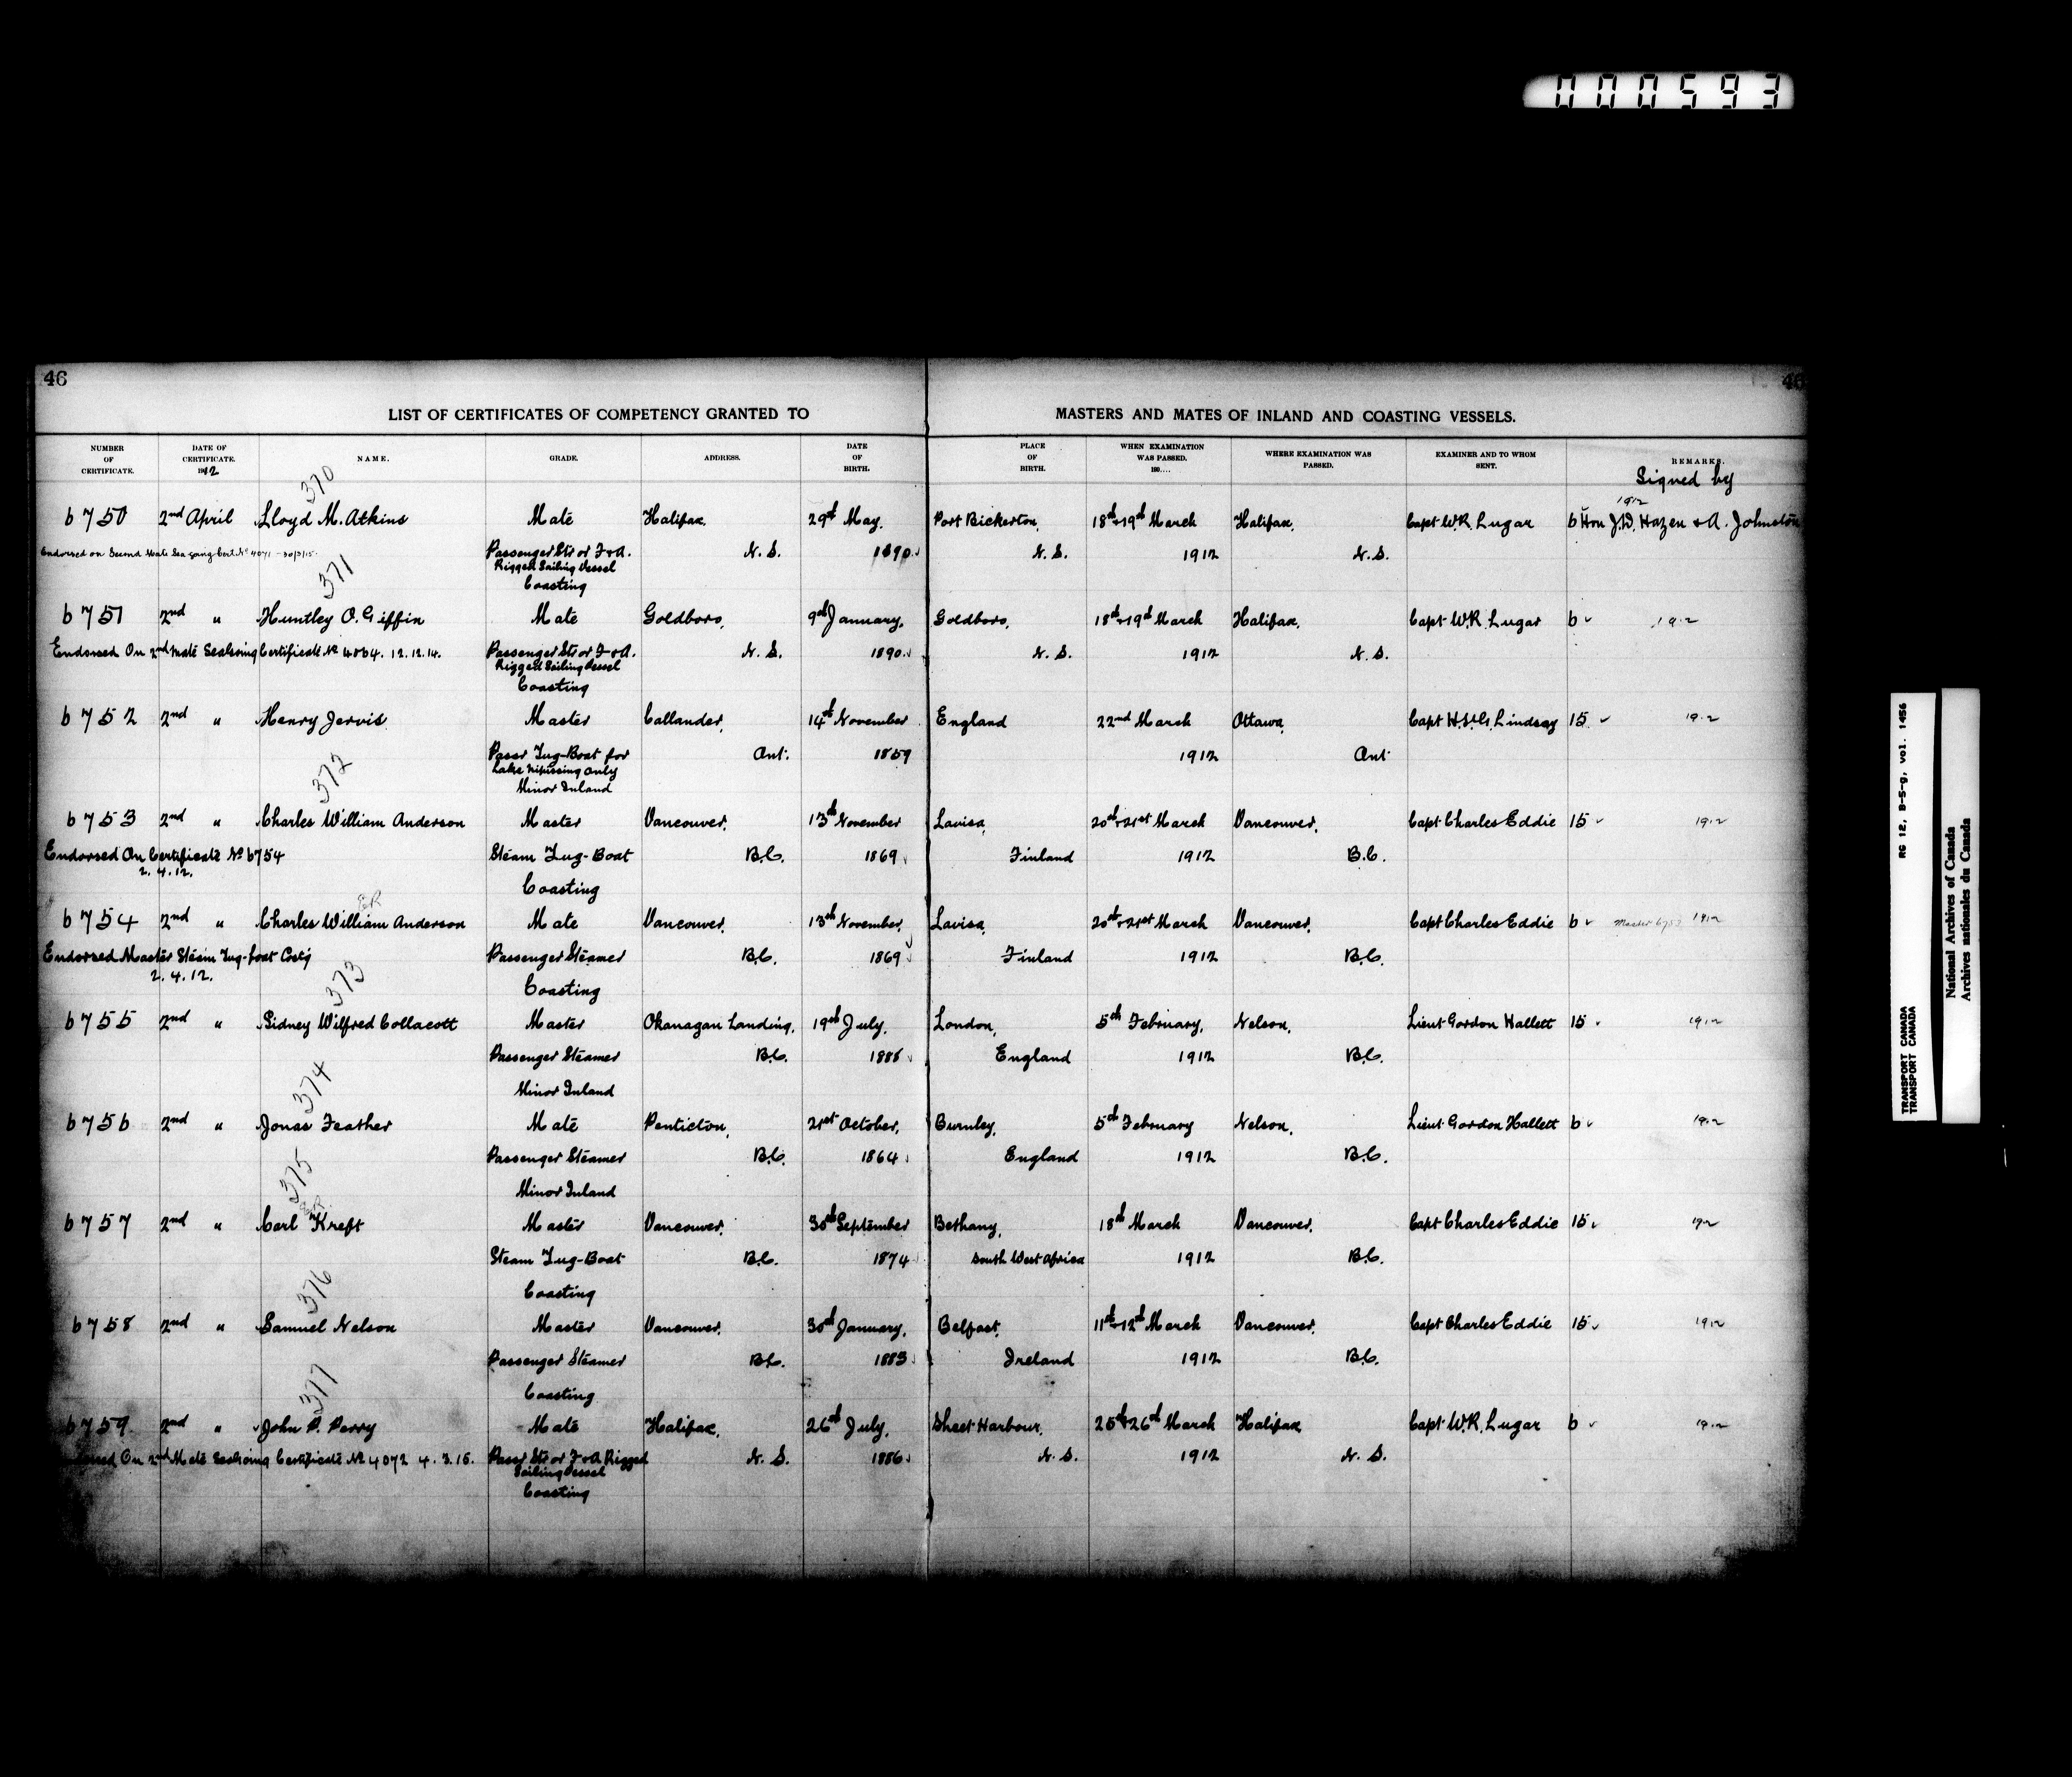 000593
46
46
LIST OF CERTIFICATES OF COMPETENCY GRANTED TO MASTERS AND MATES OF INLAND AND COASTING VESSELS.
NUMBER OF CERTIFICATE. DATE OF CERTIFICATE. 1912 NAME. GRADE. ADDRESS. DATE OF BIRTH. PLACE OF BIRTH. WHEN EXAMINATION WAS PASSED. 190.... WHERE EXAMINATION WAS PASSED. EXAMINER AND TO WHOM SENT. REMARKS.
Signed by
370
1912
6750 2nd April Lloyd M. Atkins Mate Halifax, 29th May. Port Bickerton, 18th+19th March Halifax, Capt W.R. Lugar 6 Hon J.D. Hazen + A. Johnston
Endorsed on Second Mate Sea going Cert. No 4071 - 30/3/15. Passenger Str or F+A. N.S. 1890. N.S. 1912 N.S.
Rigged Sailing Vessel
Coasting
371
6751 2nd " Huntley O. Giffin Mate Goldboro, 9th January, Goldboro, 18th+19th March Halifax, Capt W.R. Lugar 6 1912
Endorsed On 2nd Mate Seagoing Certificate No 4064. 12.12.14. Passenger Str or F+A. N.S. 1890. N.S. 1912 N.S.
Rigged Sailing Vessel
Coasting
6752 2nd " Henry Jervis Master Callander, 14th November England 22nd March Ottawa, Capt H. St. G. Lindsay 15 1912
Passr Tug-Boat for Ont. 1859 1912 Ont
Lake Nipissing only
Minor Inland
372
6753 2nd " Charles William Anderson Master Vancouver, 13th November Lavisa, 20th+21st March Vancouver, Capt Charles Eddie 15 1912
Endorsed On Certificate No 6754 Steam Tug-Boat B.C. 1869 Finland 1912 B.C.
2.4.12.
Coasting
6754 2nd " Charles William Anderson Mate Vancouver, 13th November, Lavisa, 20th+21st March Vancouver, Capt Charles Eddie 6 Master 6753 1912
Endorsed Master Steam Tug-boat Cost'g Passenger Steamer B.C. 1869 Finland 1912 B.C.
2.4.12.
Coasting
373
6755 2nd " Sidney Wilfred Collacott Master Okanagan Landing, 19th July, London, 5th February, Nelson, Lieut Gordon Hallett 15 1912
Passenger Steamer B.C. England 1912 B.C.
Minor Inland
374
6756 2nd " Jonas Feather Mate Penticton, 21st October, Burnley, 5th February Nelson, Lieut Gordon Hallett 6 1912
Passenger Steamer B.C. 1864 England 1912 B.C.
Minor Inland
375
6757 2nd " Carl Kreft Master Vancouver, 30th September Bethany, 18th March Vancouver, Capt Charles Eddie 15 1912
Steam Tug-Boat B.C. 1874 South West Africa 1912 B.C.
Coasting
376
6758 2nd " Samuel Nelson Master Vancouver, 30th January, Belfast, 11th+12th March Vancouver, Capt Charles Eddie 15 1912
Passenger Steamer B.C. 1883 Ireland 1912 B.C.
Coasting
377
6759 2nd " John P. Perry Mate Halifax, 26th July, Sheet Harbour, 25th+26th March Halifax Capt W.R. Lugar 6 1912
On 2nd Mate Seagoing Certificate No 4072 4.3.15. Passr Str or F+A Rigged N.S. 1886 N.S. 1912 N.S.
Sailing Vessel
Coasting
TRANSPORT CANADA RG 12, B-5-g, vol. 1456
TRANSPORT CANADA
National Archives of Canada
Archives nationales du Canada